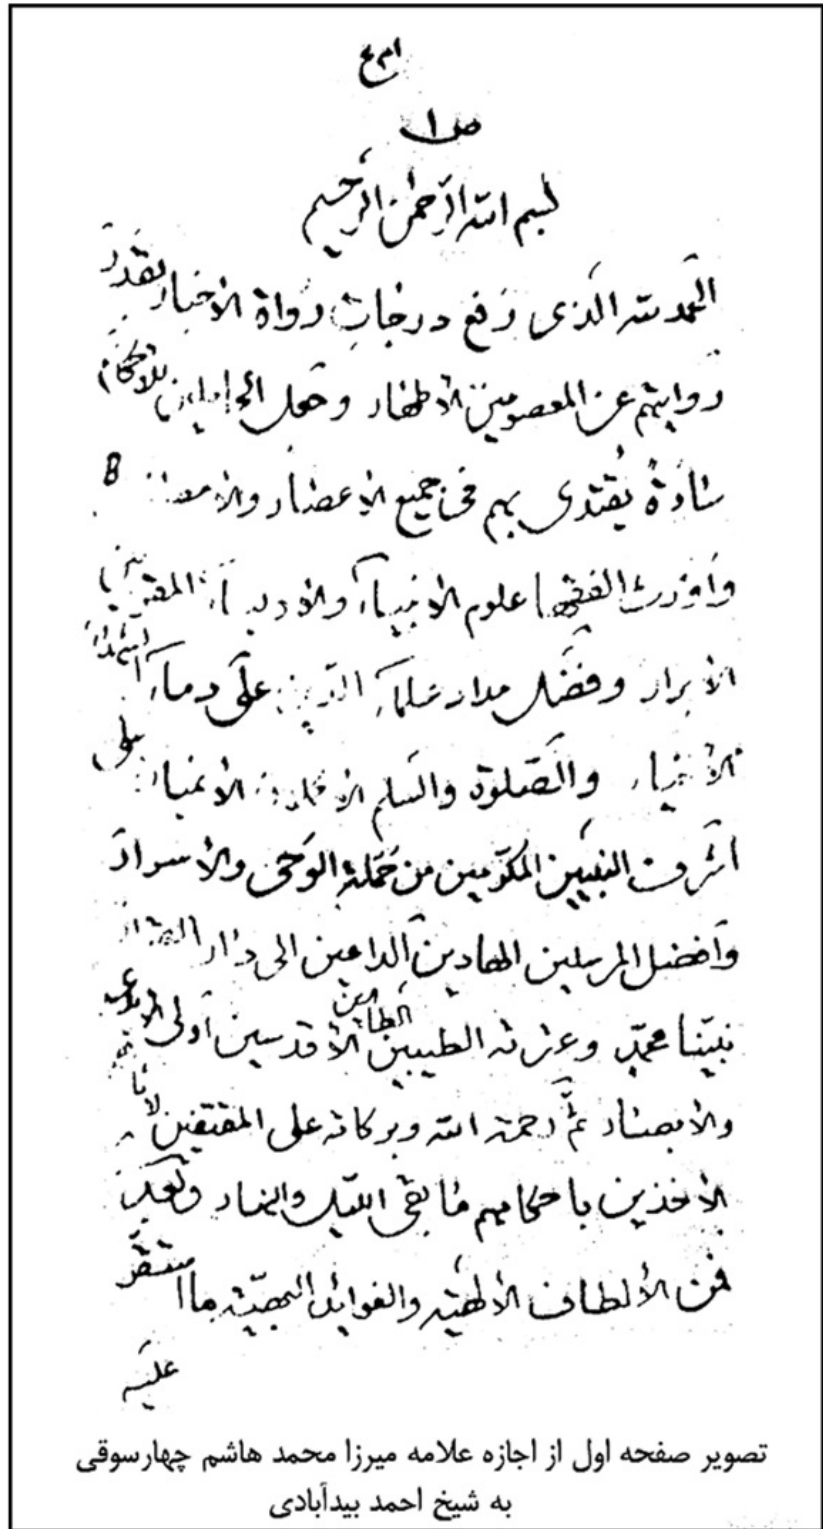 ص ۱
بسم الله الرّحمٰن الرّحیم
الحمد لله الّذی رَفع درجاتِ رُواة الأخبار بقدر
روایتهم عن المعصومین الأطهار وجعل الحاملین للأحکام
سادةً یُقتدی بهم فی جمیع الأعصار والأمصار
وأورث الفقهاء علوم الأنبیاء والأوصیاء المقربین
الأبرار وفضّل مداد علماء الدّین علی دماء الشهداء
والصّلوة والسلام علی
أشرف النبیّین المکرّمین من حَمَلة الوَحی والأسرار
وأفضل المرسلین الهادین الداعین إلی دار القرار
نبیّنا محمّدٍ وعترته الطیبین الطاهرین الأقدسین أولی
والأبصار ثمّ رحمة الله وبرکاته علی المقتفین لآثارهم
الآخذین بأحکامهم ما بقی اللّیل والنهار وبعد
فمن الألطاف الإلٰهیّه والفوائد البهیّه ما استقرّ
علیه
تصویر صفحه اول از اجازه علامه میرزا محمد هاشم چهارسوقی
به شیخ احمد بیدآبادی